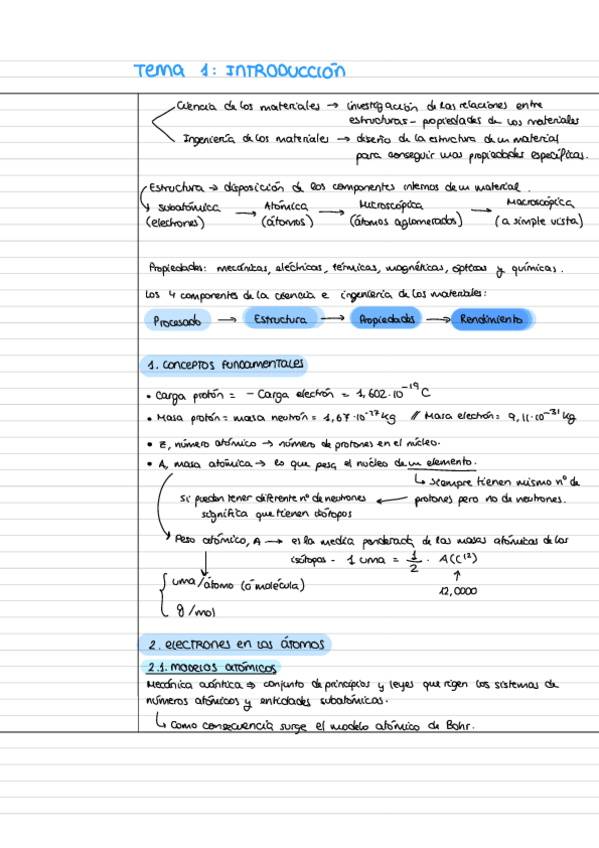 Tema 1: INTRODUCCIÓN
Ciencia de los materiales → investigación de las relaciones entre
estructuras - propiedades de los materiales
Ingeniería de los materiales → diseño de la estructura de un material
para conseguir unas propiedades específicas.
Estructura → disposición de los componentes internos de un material.
Subatómica → Atómica → Microscópica → Macroscópica
(electrones) (átomos) (átomos aglomerados) (a simple vista)
Propiedades: mecánicas, eléctricas, térmicas, magnéticas, ópticas y químicas.
Los 4 componentes de la ciencia e ingeniería de los materiales:
Procesado → Estructura → Propiedades → Rendimiento
1. Conceptos fundamentales
• Carga protón = - Carga electrón = 1,602·10⁻¹⁹ C
• Masa protón = masa neutrón = 1,67·10⁻²⁷ kg // Masa electrón = 9,11·10⁻³¹ kg
• Z, número atómico → número de protones en el núcleo.
• A, masa atómica → lo que pesa el núcleo de un elemento.
↳ siempre tienen mismo nº de
protones pero no de neutrones.
Si pueden tener diferente nº de neutrones ←
significa que tienen isótopos
Peso atómico, A → es la media ponderada de las masas atómicas de los
isótopos - 1 uma = 1/2 · A(C¹²)
↑
12,0000
uma/átomo (ó molécula)
g/mol
2. Electrones en los átomos
2.1. Modelos atómicos
Mecánica cuántica ⇒ conjunto de principios y leyes que rigen los sistemas de
números atómicos y entidades subatómicas.
↳ Como consecuencia surge el modelo atómico de Bohr.